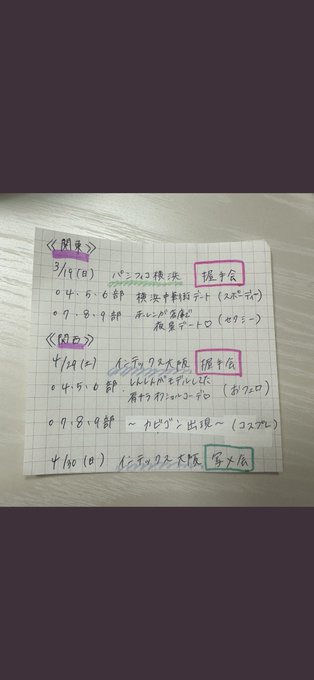 《関東》
3/19(日) パシフィコ横浜 握手会
○4.5.6部 横浜中華街デート(スポーティー)
○7.8.9部 夜景デート♡(セクシー)
《関西》
4/29(土) インテックス大阪 握手会
○4.5.6部 (おフェロ)
○7.8.9部 ～カビゴン出現～(コスプレ)
4/30(日) インテックス大阪 写メ会